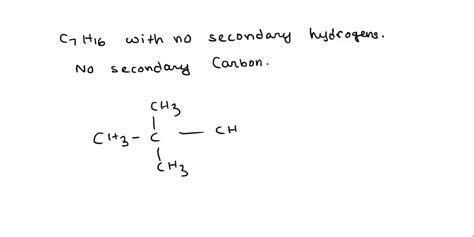 C7H16 with no secondary hydrogens.
No secondary Carbon.
CH3
|
CH3 - C — CH
|
CH3